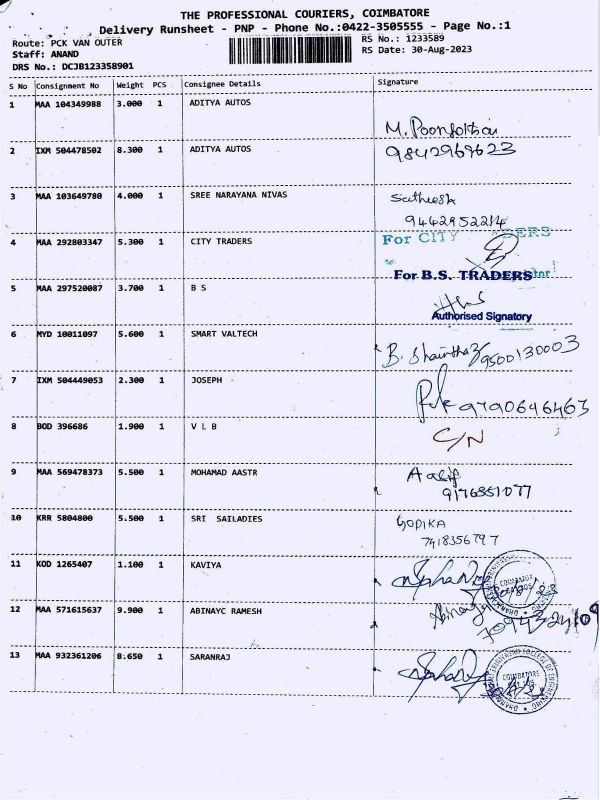 THE PROFESSIONAL COURIERS, COIMBATORE
Delivery Runsheet - PNP - Phone No.:0422-3505555 - Page No.:1
Route: PCK VAN OUTER
RS No.: 1233589
Staff: ANAND
RS Date: 30-Aug-2023
DRS No.: DCJB123358901
S No Consignment No Weight PCS Consignee Details Signature
1 MAA 104349988 3.000 1 ADITYA AUTOS
M. Poonfothai
2 IXM 504478502 8.300 1 ADITYA AUTOS 9842969623
3 MAA 103649780 4.000 1 SREE NARAYANA NIVAS Satheesh
9442952214
4 MAA 292803347 5.300 1 CITY TRADERS For CITY
For B.S. TRADERS
5 MAA 297520087 3.700 1 B S
Authorised Signatory
6 MYD 10011097 5.600 1 SMART VALTECH B. 9500130003
7 IXM 504449053 2.300 1 JOSEPH 9790646463
8 BOD 396686 1.900 1 V L B C/N
9 MAA 569478373 5.500 1 MOHAMAD AASTR Aasif
9176551077
10 KRR 5804800 5.500 1 SRI SAILADIES GOPIKA
7418356797
11 KOD 1265407 1.100 1 KAVIYA
COIMBATORE
12 MAA 571615637 9.900 1 ABINAYC RAMESH Abinaya
13 MAA 932361206 8.650 1 SARANRAJ
COIMBATORE